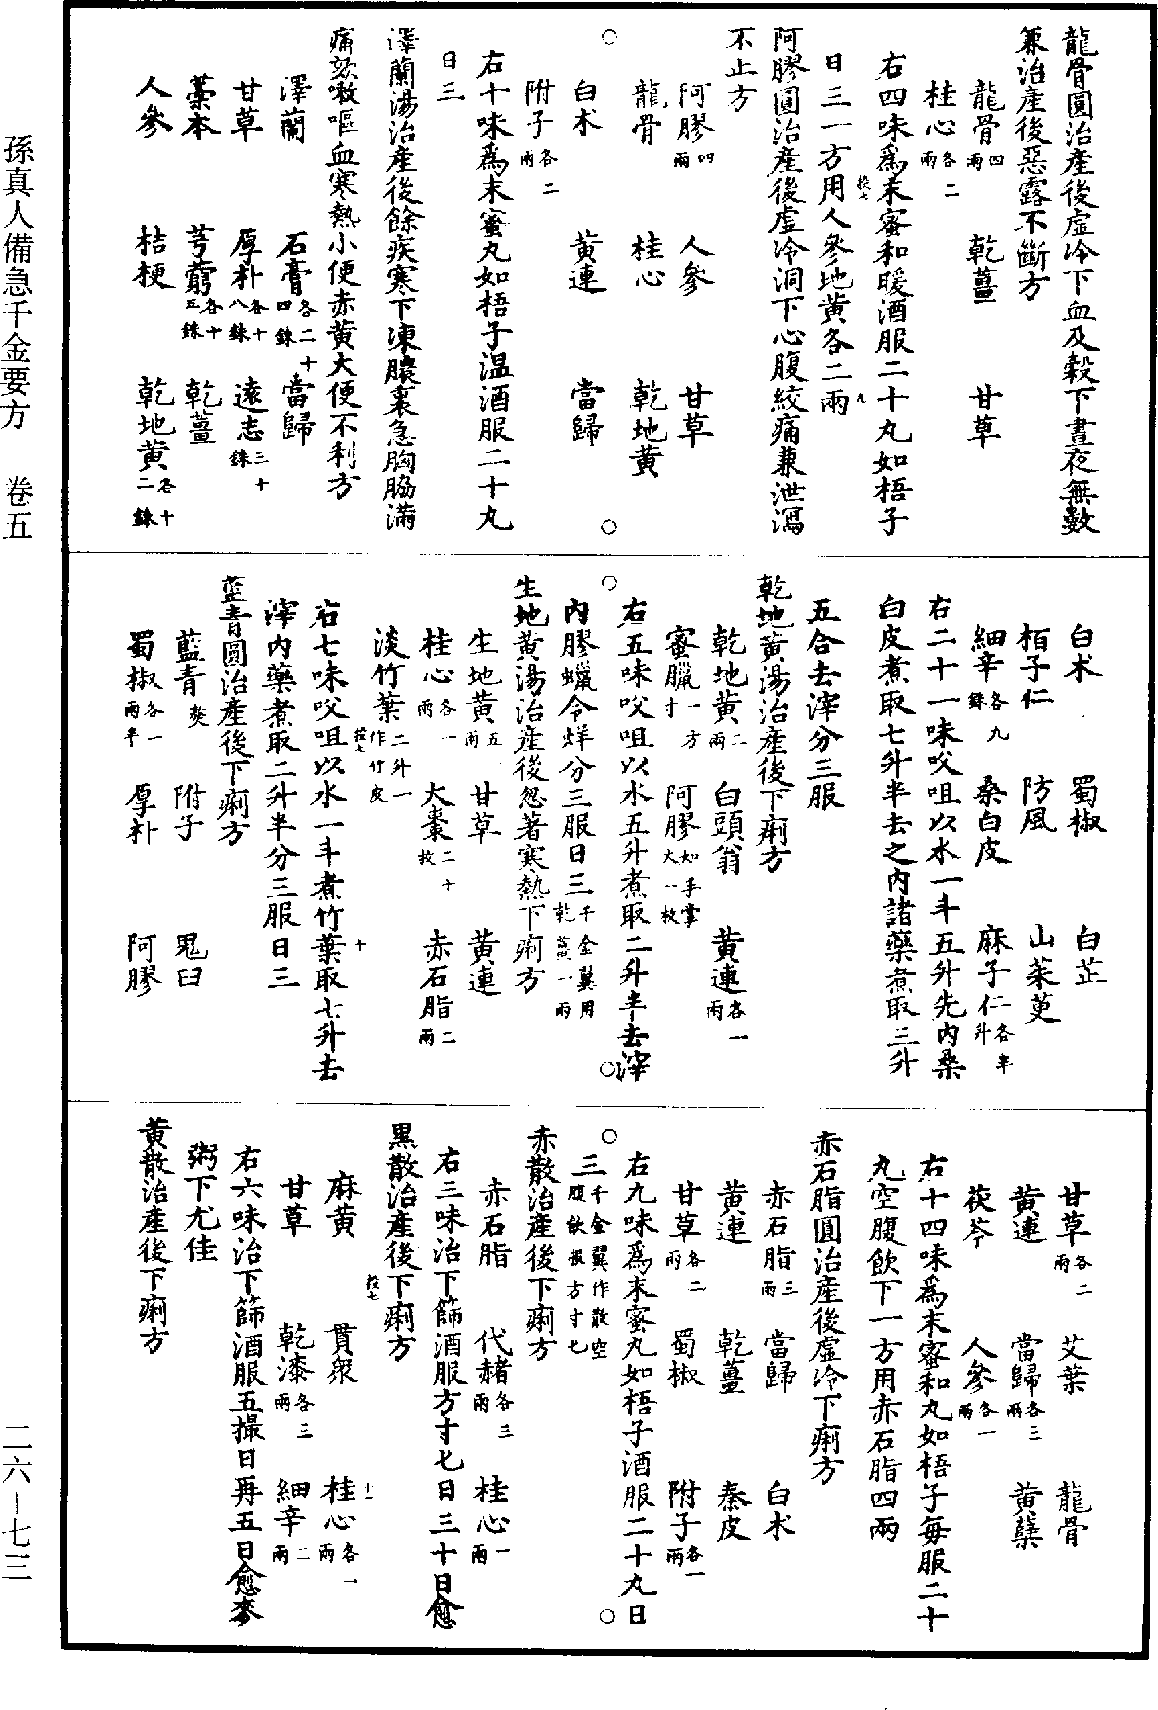 龍骨圓治產後虛冷下血及穀下晝夜無數
兼治產後惡露不斷方
龍骨四兩　乾薑　甘草
桂心各二兩
右四味爲末蜜和暖酒服二十丸如梧子
日三一方用人參地黃各二兩
阿膠圓治產後虛冷洞下心腹絞痛兼泄瀉
不止方
阿膠四兩　人參　甘草
龍骨　桂心　乾地黃
白朮　黃連　當歸
附子各二兩
右十味爲末蜜丸如梧子温酒服二十丸
日三
澤蘭湯治產後餘疾寒下凍膿裏急胸脇滿
痛欬嗽嘔血寒熱小便赤黃大便不利方
澤蘭　石膏各二十四銖　當歸
甘草　厚朴各十八銖　遠志三十銖
藁本　芎藭各十五銖　乾薑
人參　桔梗　乾地黃各十二銖
白朮　蜀椒　白芷
栢子仁　防風　山茱萸
細辛各九銖　桑白皮　麻子仁各半升
右二十一味㕮咀以水一斗五升先內桑
白皮煮取七升半去之內諸藥煮取三升
五合去滓分三服
乾地黃湯治產後下痢方
乾地黃二兩　白頭翁　黃連各一兩
蜜臘一方寸　阿膠如手掌大一枚
右五味㕮咀以水五升煮取二升半去滓
內膠蠟令烊分三服日三千金翼用乾薑一兩
生地黃湯治產後忽著寒熱下痢方
生地黃五兩　甘草　黃連
桂心各一兩　大棗二十枚　赤石脂二兩
淡竹葉二升一作竹皮
右七味㕮咀以水一斗煮竹葉取七升去
滓內藥煮取二升半分三服日三
藍青圓治產後下痢方
藍青熬　附子　鬼臼
蜀椒各一兩半　厚朴　阿膠
甘草各二兩　艾葉　龍骨
黃連　當歸各三兩　黃蘗
茯苓　人參各一兩
右十四味爲末蜜和丸如梧子每服二十
丸空腹飲下一方用赤石脂四兩
赤石脂圓治產後虛冷下痢方
赤石脂三兩　當歸　白朮
黃連　乾薑　秦皮
甘草各二兩　蜀椒　附子各一兩
右九味爲末蜜丸如梧子酒服二十丸日
三千金翼作散空腹飲服方寸匕
赤散治產後下痢方
赤石脂　代赭各三兩　桂心一兩
右三味治下篩酒服方寸匕日三十日愈
黑散治產後下痢方
麻黃　貫衆　桂心各一兩
甘草　乾漆各三兩　細辛二兩
右六味治下篩酒服五撮日再五日愈麥
粥下尤佳
黃散治產後下痢方
孫真人備急千金要方　卷五
二六—七三